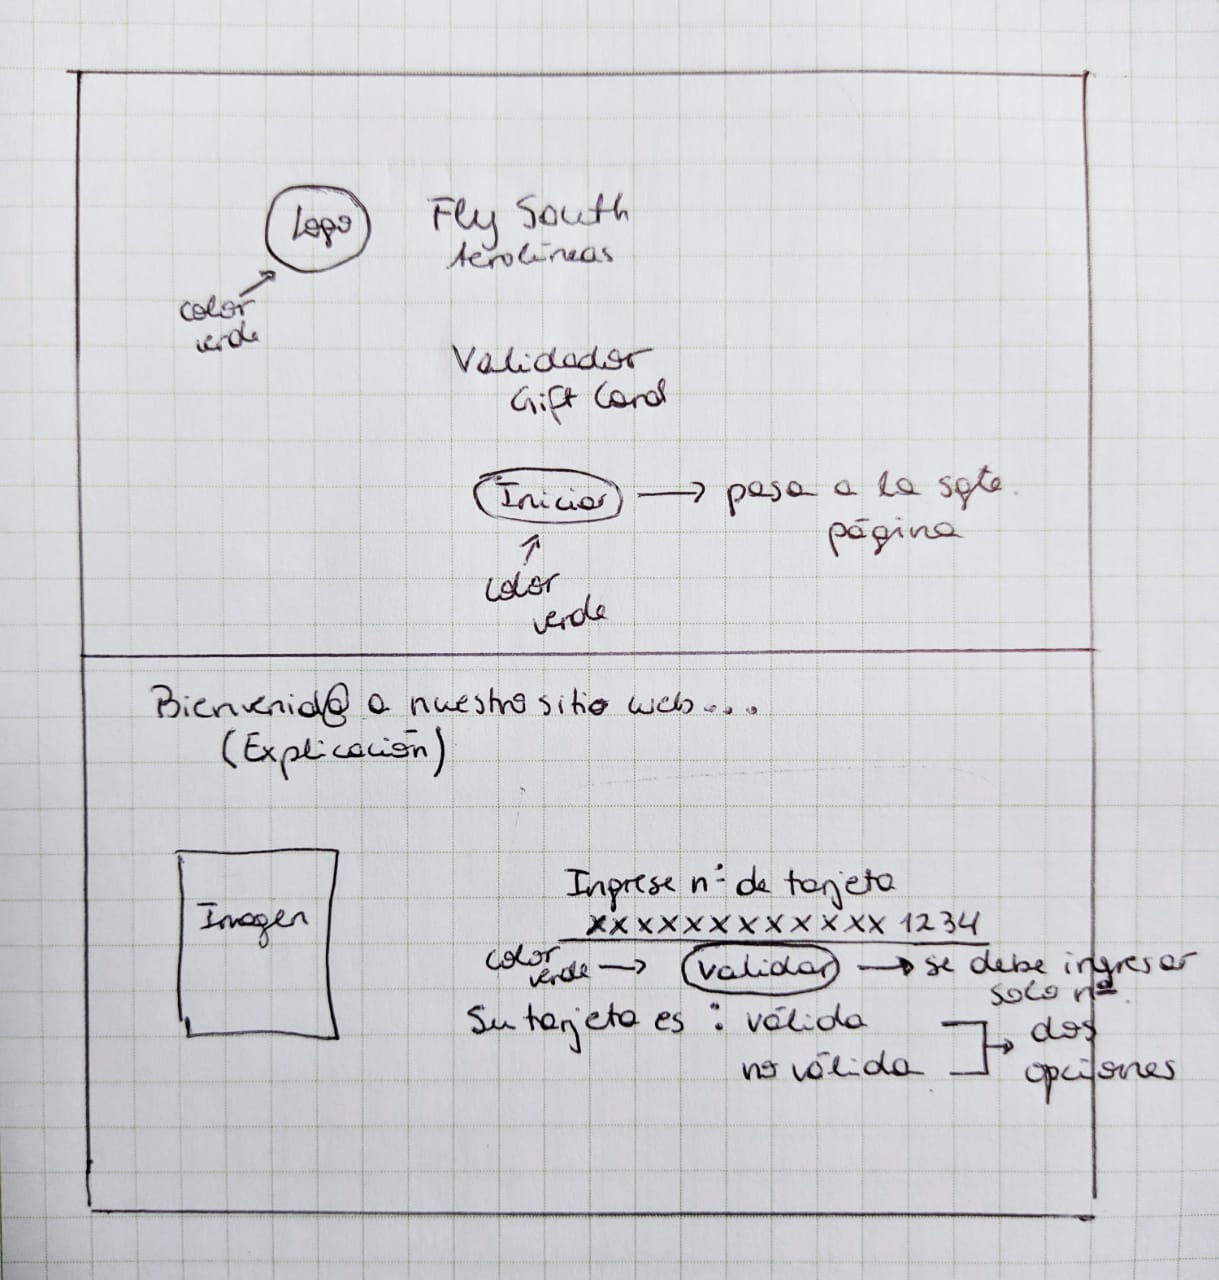 Logo
Fly South
Aerolíneas
color
verde
Validador
Gift Card
Iniciar
pasa a la sgte.
página
color
verde
Bienvenid@ a nuestro sitio web....
(Explicación)
Imagen
Ingrese nº de tarjeta
xxxxxxxxxxxx 1234
color
verde
Validar
se debe ingresar
solo nº.
Su tarjeta es : válida
no válida
dos
opciones